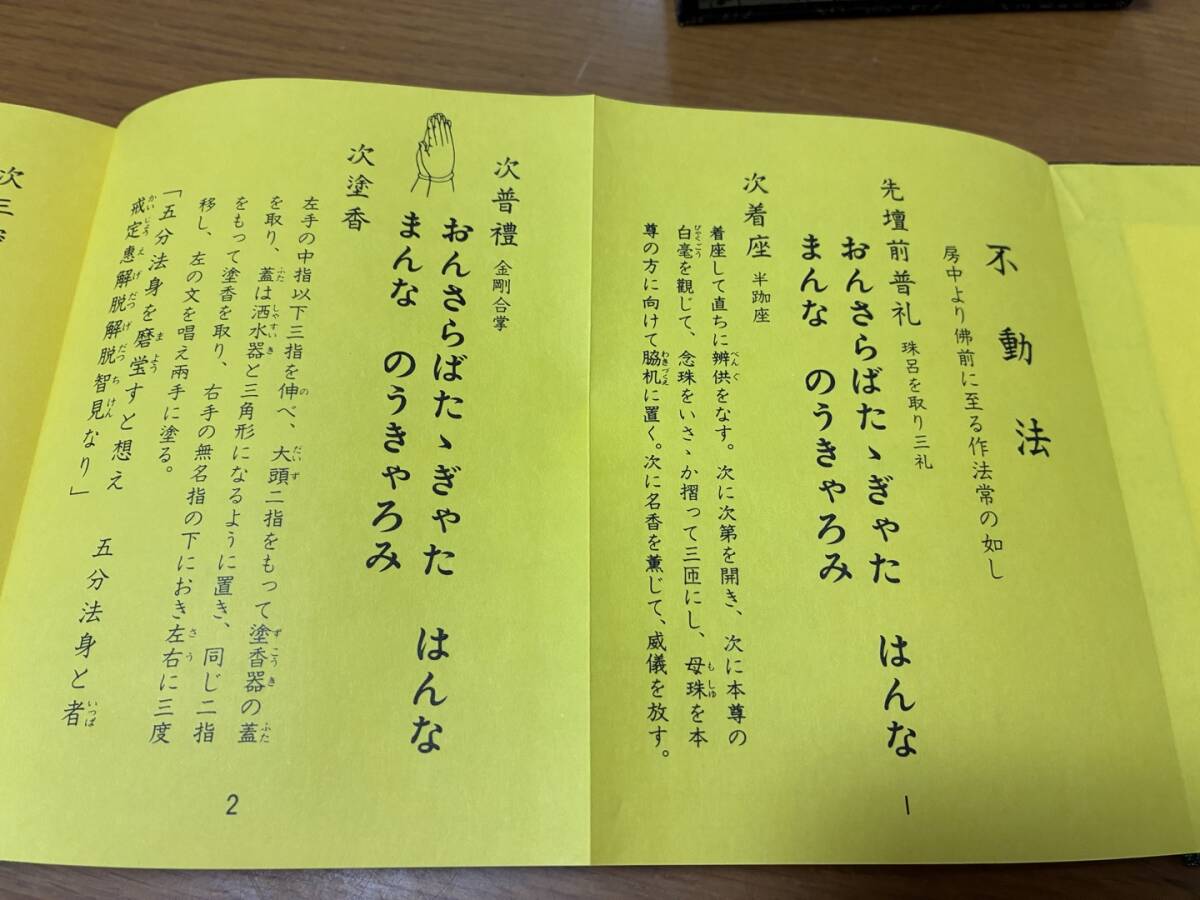 不動法
房中より佛前に至る作法常の如し
先壇前普礼 珠呂を取り三礼
おんさらばたゝぎゃた はんな
まんな のうきゃろみ
次着座 半跏座
着座して直ちに辨供をなす。次に次第を開き、次に本尊の
白毫を観じて、念珠をいさゝか摺って三匝にし、母珠を本
尊の方に向けて脇机に置く。次に名香を薫じて、威儀を放す。
1
次普禮 金剛合掌
おんさらばたゝぎゃた はんな
まんな のうきゃろみ
次塗香
左手の中指以下三指を伸べ、大頭二指をもって塗香器の蓋
を取り、蓋は洒水器と三角形になるように置き、同じ二指
をもって塗香を取り、右手の無名指の下におき左右に三度
移し、左の文を唱え兩手に塗る。
「五分法身を磨瑩すと想え 五分法身と者
戒定惠解脱解脱智見なり」
2
次三